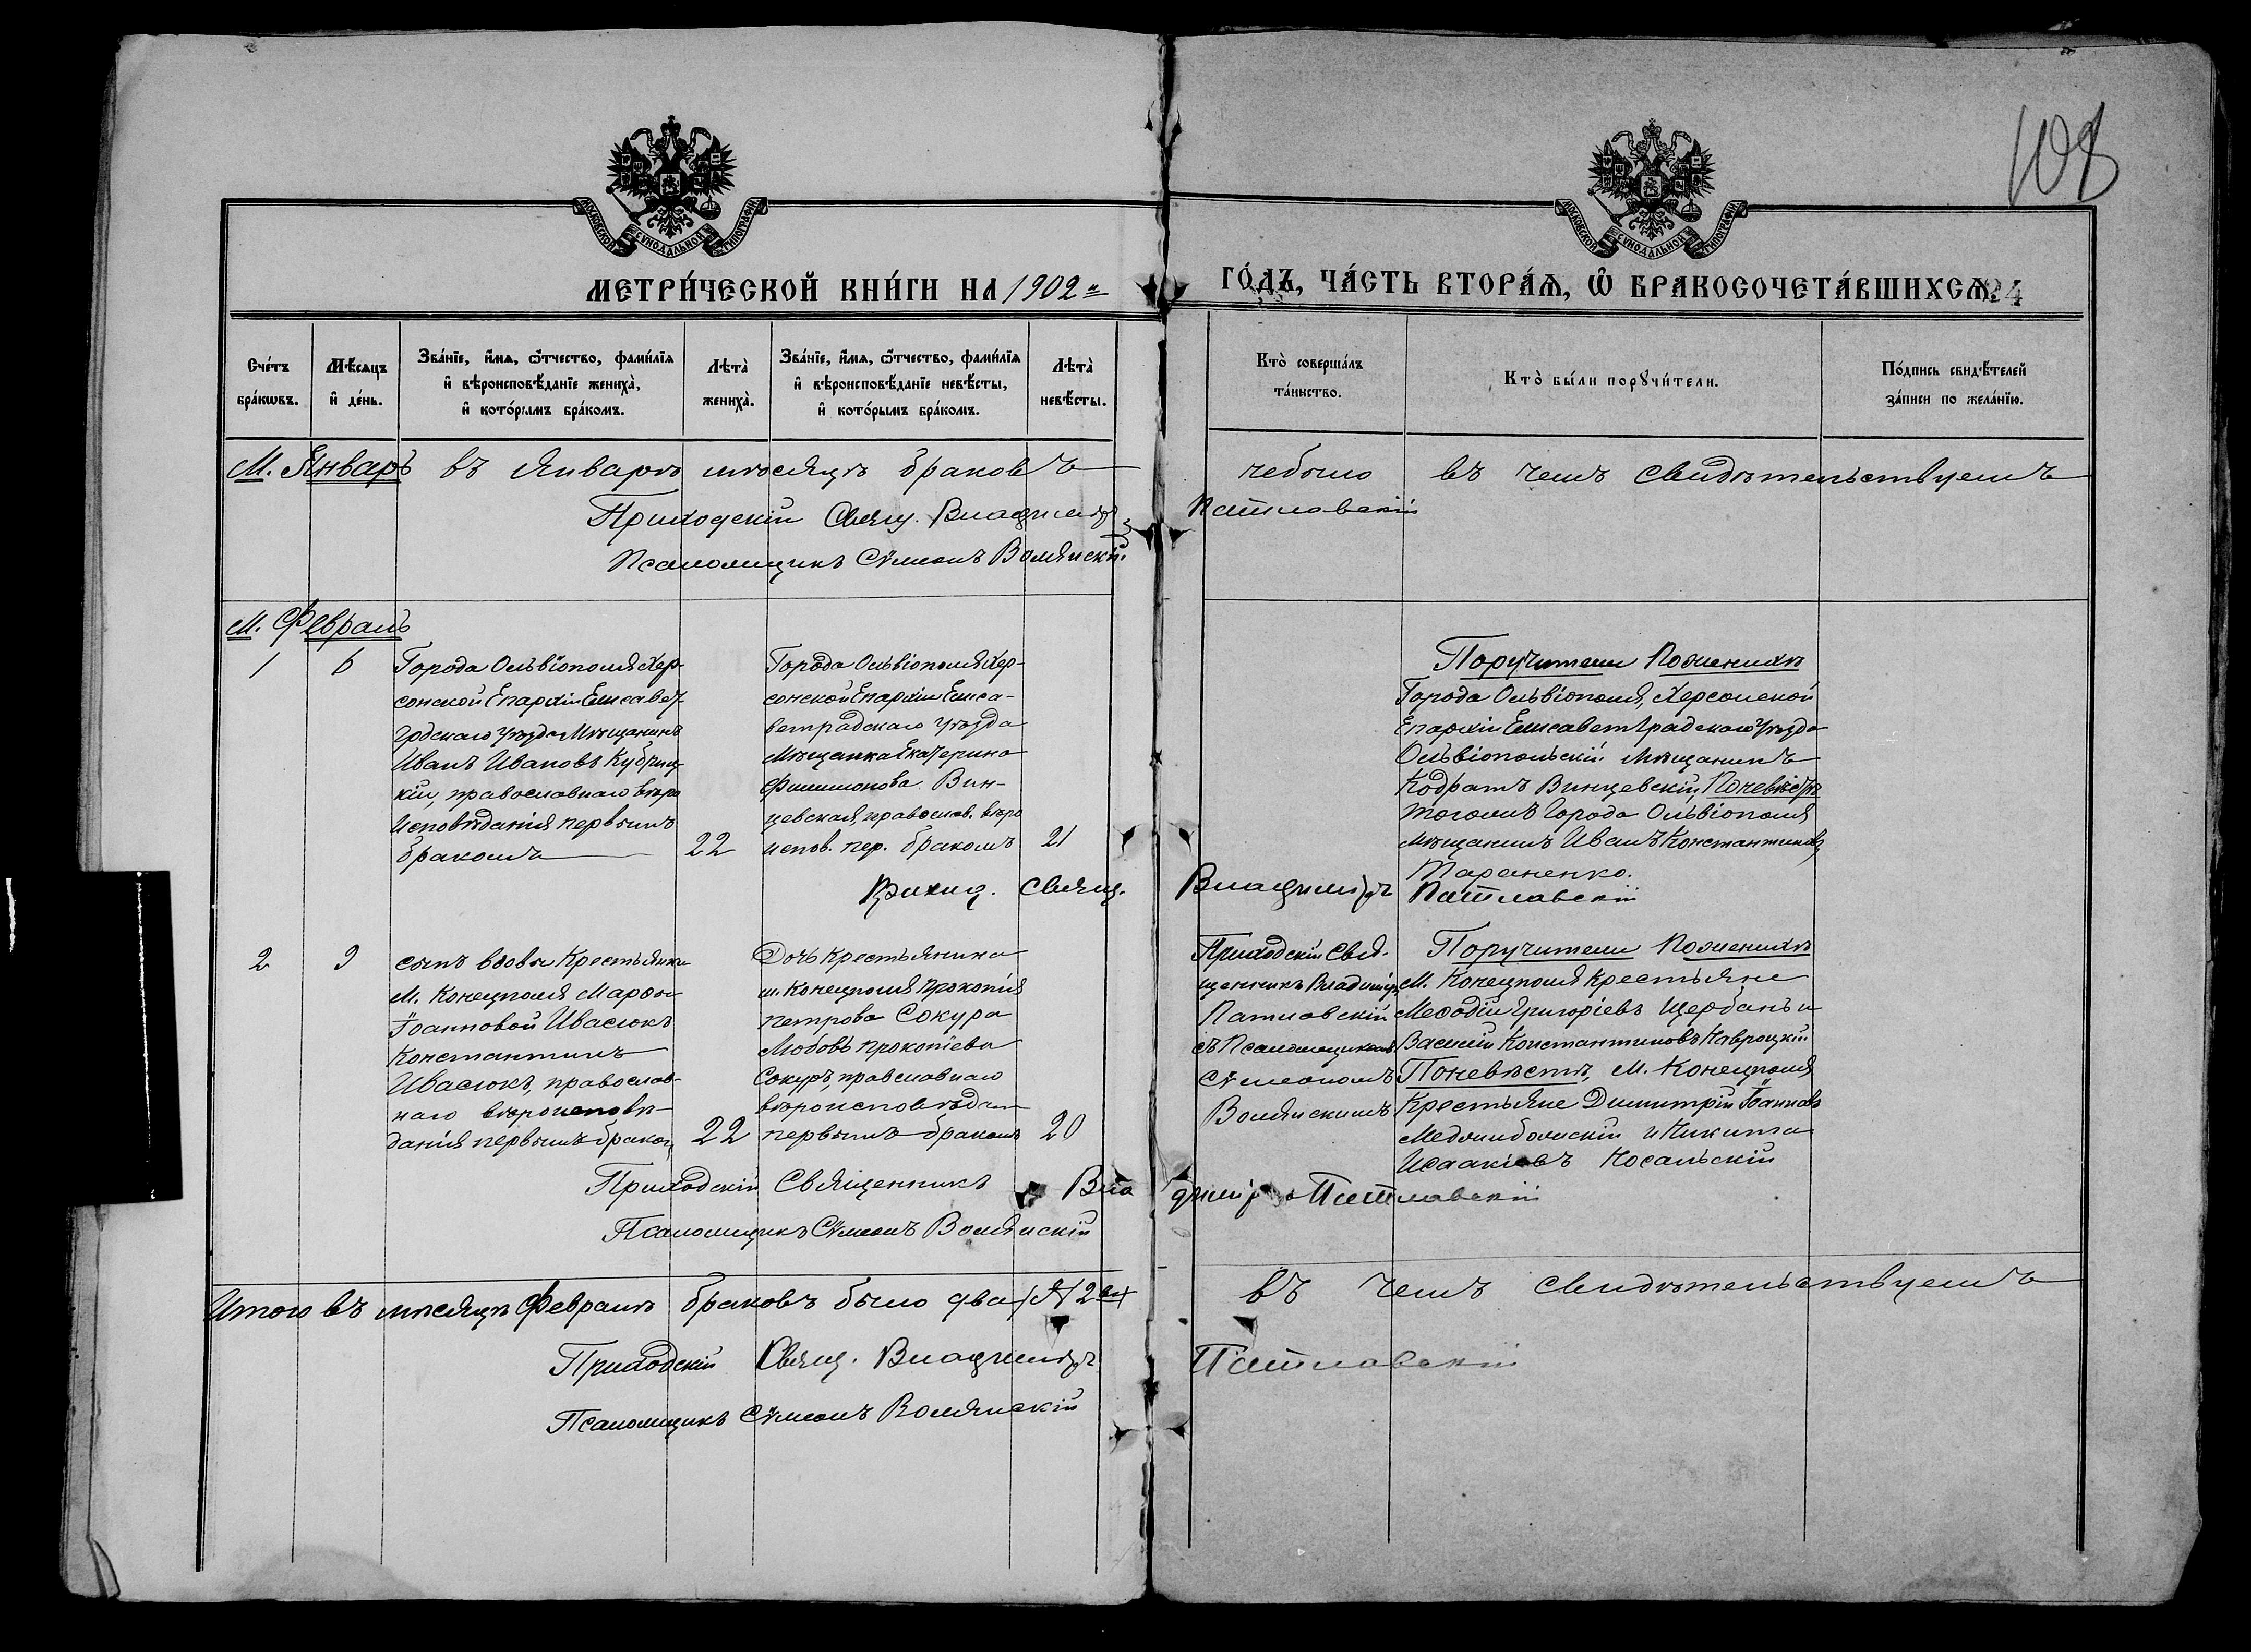 108
МОСКОВСКОЙ СѴНОДАЛЬНОЙ ТИПОГРАФІИ
МОСКОВСКОЙ СѴНОДАЛЬНОЙ ТИПОГРАФІИ
МЕТРИ́ЧЕСКОЙ КНИ́ГИ НА 1902 й
ГО́ДЪ, ЧА́СТЬ ВТОРА́Ѧ, Ѡ҆ БРАКОСОЧЕТА́ВШИХСѦ.
Сче́тъ
бра́кѡвъ.
Мѣ́сяцъ
и҆ де́нь.
Зва́нїе, и҆́мѧ, ѻ҆́тчество, фами́лїѧ
и҆ вѣроисповѣ́данїе жениха̀,
и҆ кото́рымъ бра́комъ.
Лѣта̀
жениха̀.
Зва́нїе, и҆́мѧ, ѻ҆́тчество, фами́лїѧ
и҆ вѣроисповѣ́данїе невѣ́сты,
и҆ кото́рымъ бра́комъ.
Лѣта̀
невѣ́сты.
Кто̀ соверша́лъ
та́инство.
Кто̀ бы́ли порꙋчи́тели.
По́дпись свидѣ́телей
за́писи по жела́нїю.
М. Январь въ Январѣ мѣсяцѣ браковъ
небыло въ чемъ свидѣтельствуемъ
Приходскій Свящ. Владиміръ
Патлавскій
Псаломщикъ Сѵмеонъ Волянскій.
М. Февраль
1 6
Города Ольвіополя Хер-
сонской Епархіи Елисавет-
градскаго уѣзда Мѣщанинъ
Иванъ Ивановъ
кій, православнаго вѣро
исповѣданія первымъ
бракомъ
22
Города Ольвіополя Хер-
сонской Епархіи Елиса-
ветградскаго уѣзда
Мѣщанка Екатерина
Филимонова Вин-
цевская, православ. вѣро
испов. пер. бракомъ
21
Поручители Поженихѣ
Города Ольвіополя, Херсонской
Епархіи Елисаветградскаго уѣзда
Ольвіопольскій мѣщанинъ
Кодратъ Винцевскій, Поневѣстѣ
тогожъ Города Ольвіополя
мѣщанинъ Иванъ Константиновъ
Параненко.
Приход. Свящ.
Владиміръ Патлавскій
2 9
сынъ вдовы Крестьянки
М. Конецполя Марфы
Іоанновой Ивасюкъ
Константинъ
Ивасюкъ, православ-
наго вѣроисповѣ-
данія первымъ браком,
22
Дочь Крестьянина
м. Конецполя Прокопія
Петрова Сокура
Любовь Прокопіева
Сокуръ, православнаго
вѣроисповѣдан
первымъ бракомъ
20
Приходскій Свя-
щенникъ Владиміръ
Патлавскій
съ Псаломщикомъ
Сѵмеономъ
Волянскимъ
Поручители Поженихѣ
М. Конецполя Крестьяне
Мефодій Григоріевъ Щербань и
Василій Константиновъ Навроцкій
Поневѣстѣ, М. Конецполя
Крестьяне Димитрій Іоанновъ
Меджибожскій и Никита
Исаакіевъ Косальскій
Приходскій Священникъ Вла
диміръ Патлавскій
Псаломщикъ Сѵмеонъ Волянскій
Итого въ мѣсяцѣ Февралѣ браковъ было два
въ чемъ свидѣтельствуемъ
Приходскій Свящ. Владиміръ
Патлавскій
Псаломщикъ Сѵмеонъ Волянскій